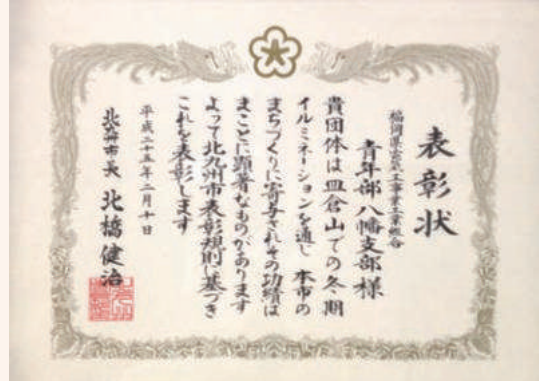 表彰状
福岡県電気工事業工業組合
青年部八幡支部様
貴団体は皿倉山での冬期
イルミネーションを通じ本市の
まちづくりに寄与されその功績は
まことに顕著なものがあります
よって北九州市表彰規則に基づき
これを表彰します
平成二十五年二月十日
北九州市長 北橋健治